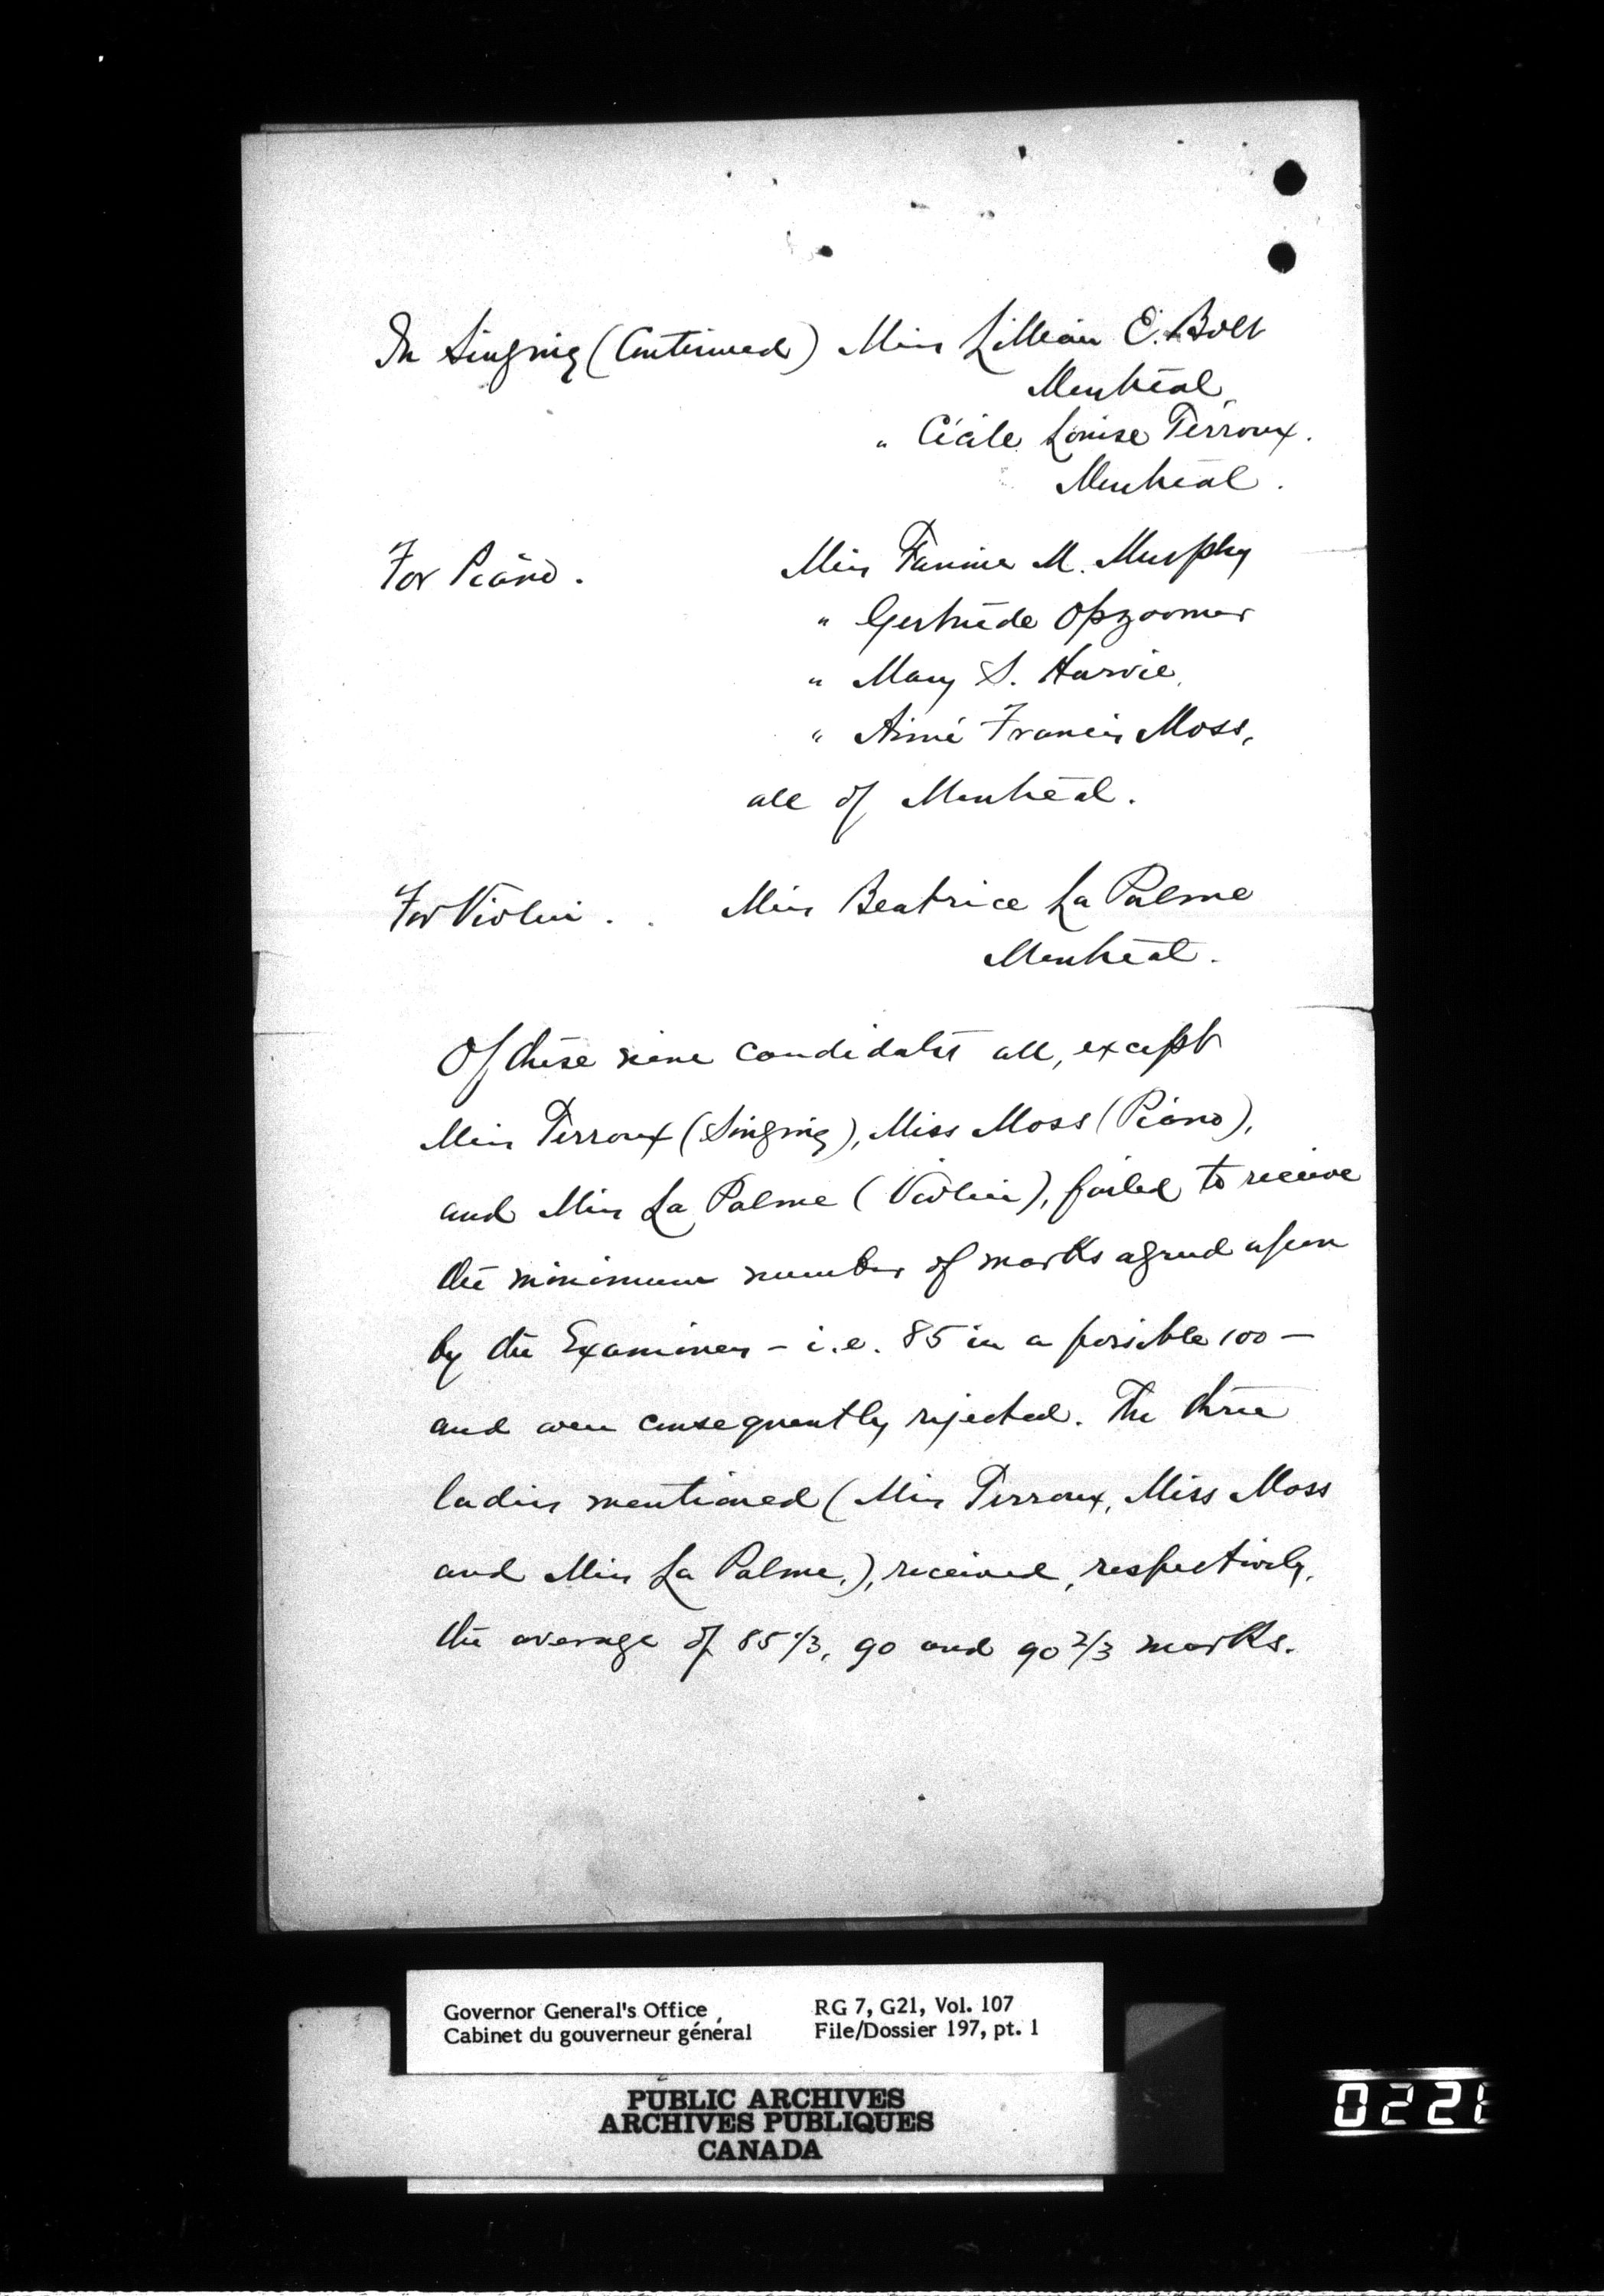 In Singing (Continued) Miss Lillian E. Bolt
Montreal,
" Cécile Louise Terroux.
Montreal.
For Piano. Miss Fannie M. Murphy
" Gertrude Opzoomer
" Mary S. Harvie,
" Aimé Francis Moss,
all of Montreal.
For Violin. . Miss Beatrice La Palme
Montreal.
Of these nine candidates all, except
Miss Terroux (Singing), Miss Moss (Piano),
and Miss La Palme (Violin), failed to receive
the minimum number of marks agreed upon
by the Examiners - i.e. 85 in a possible 100 -
and were consequently rejected. The three
ladies mentioned (Miss Terroux, Miss Moss
and Miss La Palme,), received, respectively,
the average of 85 1/3, 90 and 90 2/3 marks.
Governor General's Office RG 7, G21, Vol. 107
Cabinet du gouverneur général File/Dossier 197, pt. 1
PUBLIC ARCHIVES
ARCHIVES PUBLIQUES
CANADA
0221